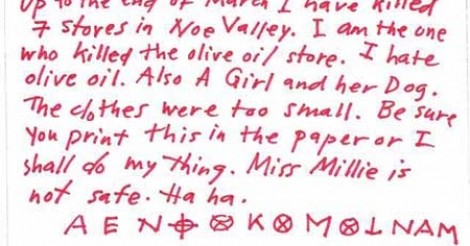 Up to the end of March I have killed
7 stores in Noe Valley. I am the one
who killed the olive oil store. I hate
olive oil. Also A Girl and her Dog.
The clothes were too small. Be sure
you print this in the paper or I
shall do my thing. Miss Millie is
not safe. Ha ha.
A E N ⌖ ⊗ K ⊗ M ⊗ ⊥ NAM